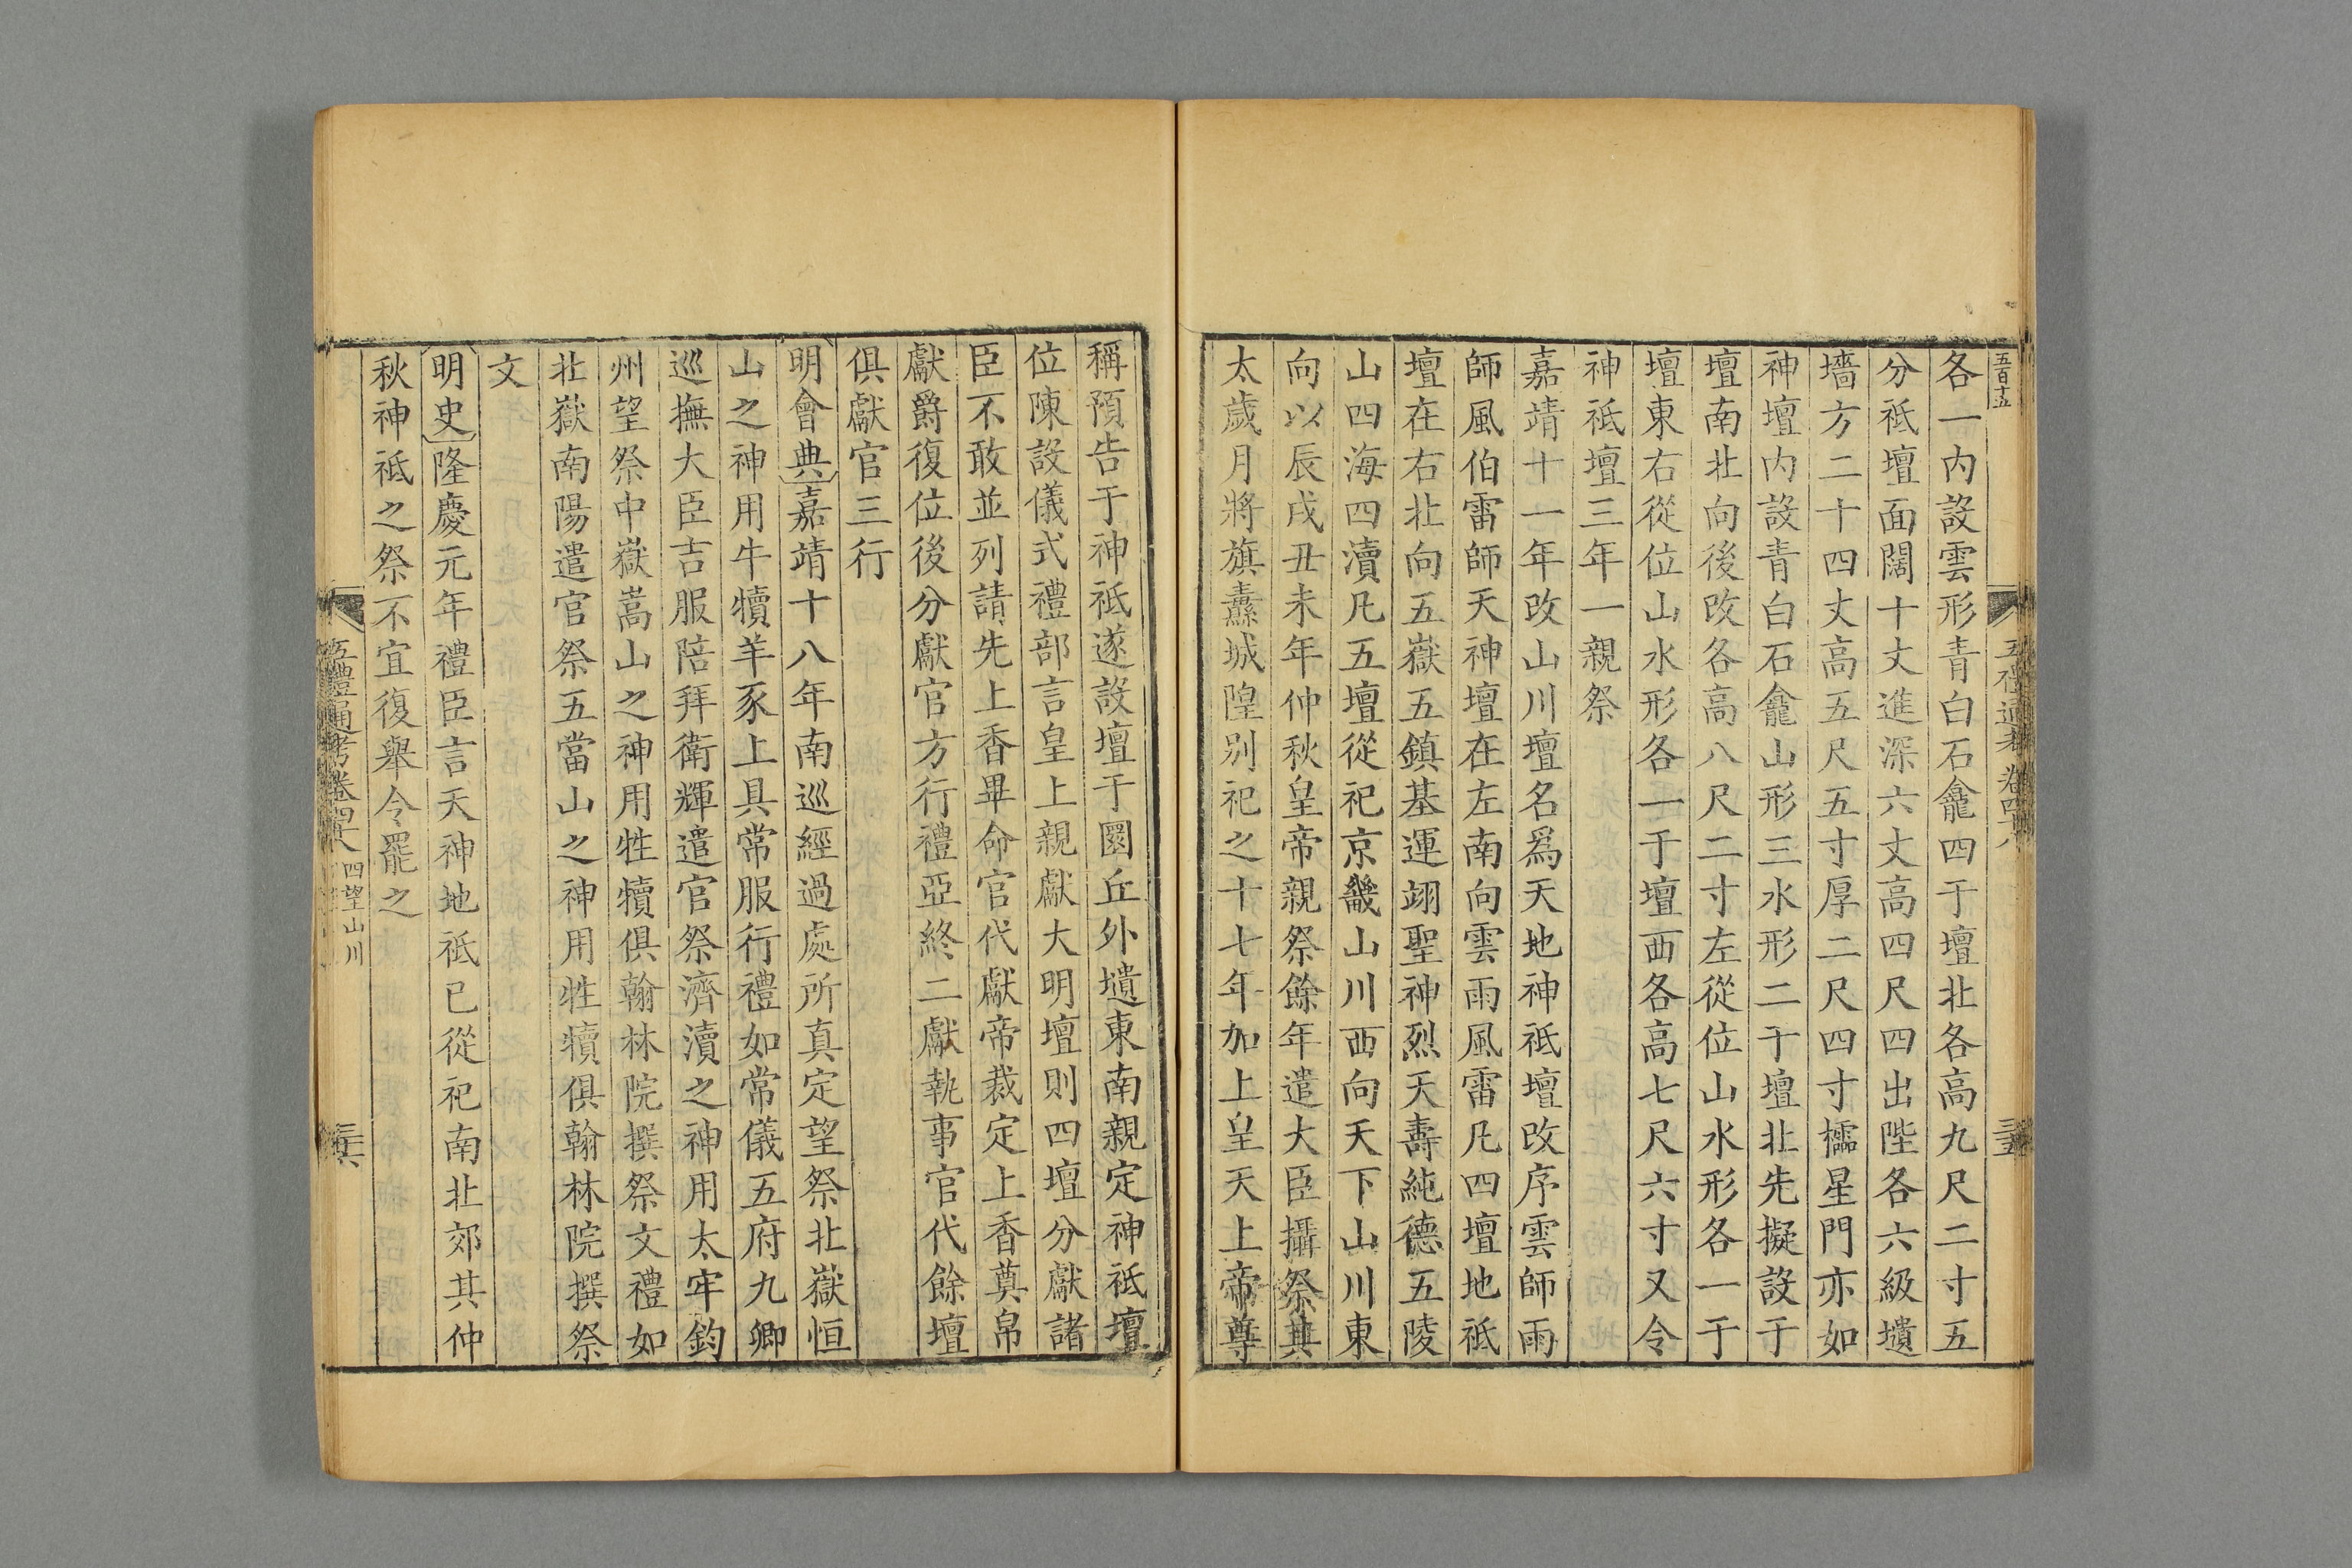 五百十五
五禮通考卷四十八
三五
各一内設雲形青白石龕四于壇北各高九尺二寸五
分祇壇面闊十丈進深六丈高四尺四出陛各六級壝
墻方二十四丈高五尺五寸厚二尺四寸櫺星門亦如
神壇内設青白石龕山形三水形二于壇北先擬設于
壇南北向後改各高八尺二寸左從位山水形各一于
壇東右從位山水形各一于壇西各高七尺六寸又令
神祇壇三年一親祭
嘉靖十一年改山川壇名爲天地神祇壇改序雲師雨
師風伯雷師天神壇在左南向雲雨風雷凡四壇地祇
壇在右北向五嶽五鎮基運翊聖神烈天壽純德五陵
山四海四瀆凡五壇從祀京畿山川西向天下山川東
向以辰戌丑未年仲秋皇帝親祭餘年遣大臣攝祭其
太歲月將旗纛城隍别祀之十七年加上皇天上帝尊
稱預告于神祇遂設壇于圜丘外壝東南親定神祇壇
位陳設儀式禮部言皇上親獻大明壇則四壇分獻諸
臣不敢並列請先上香畢命官代獻帝裁定上香奠帛
獻爵復位後分獻官方行禮亞終二獻執事官代餘壇
俱獻官三行
明會典嘉靖十八年南巡經過處所真定望祭北嶽恒
山之神用牛犢羊豕上具常服行禮如常儀五府九卿
巡撫大臣吉服陪拜衛輝遣官祭濟瀆之神用太牢鈞
州望祭中嶽嵩山之神用牲犢俱翰林院撰祭文禮如
北嶽南陽遣官祭五當山之神用牲犢俱翰林院撰祭
文
明史隆慶元年禮臣言天神地祇已從祀南北郊其仲
秋神祇之祭不宜復舉令罷之
五禮通考卷四十八 四望山川
三六